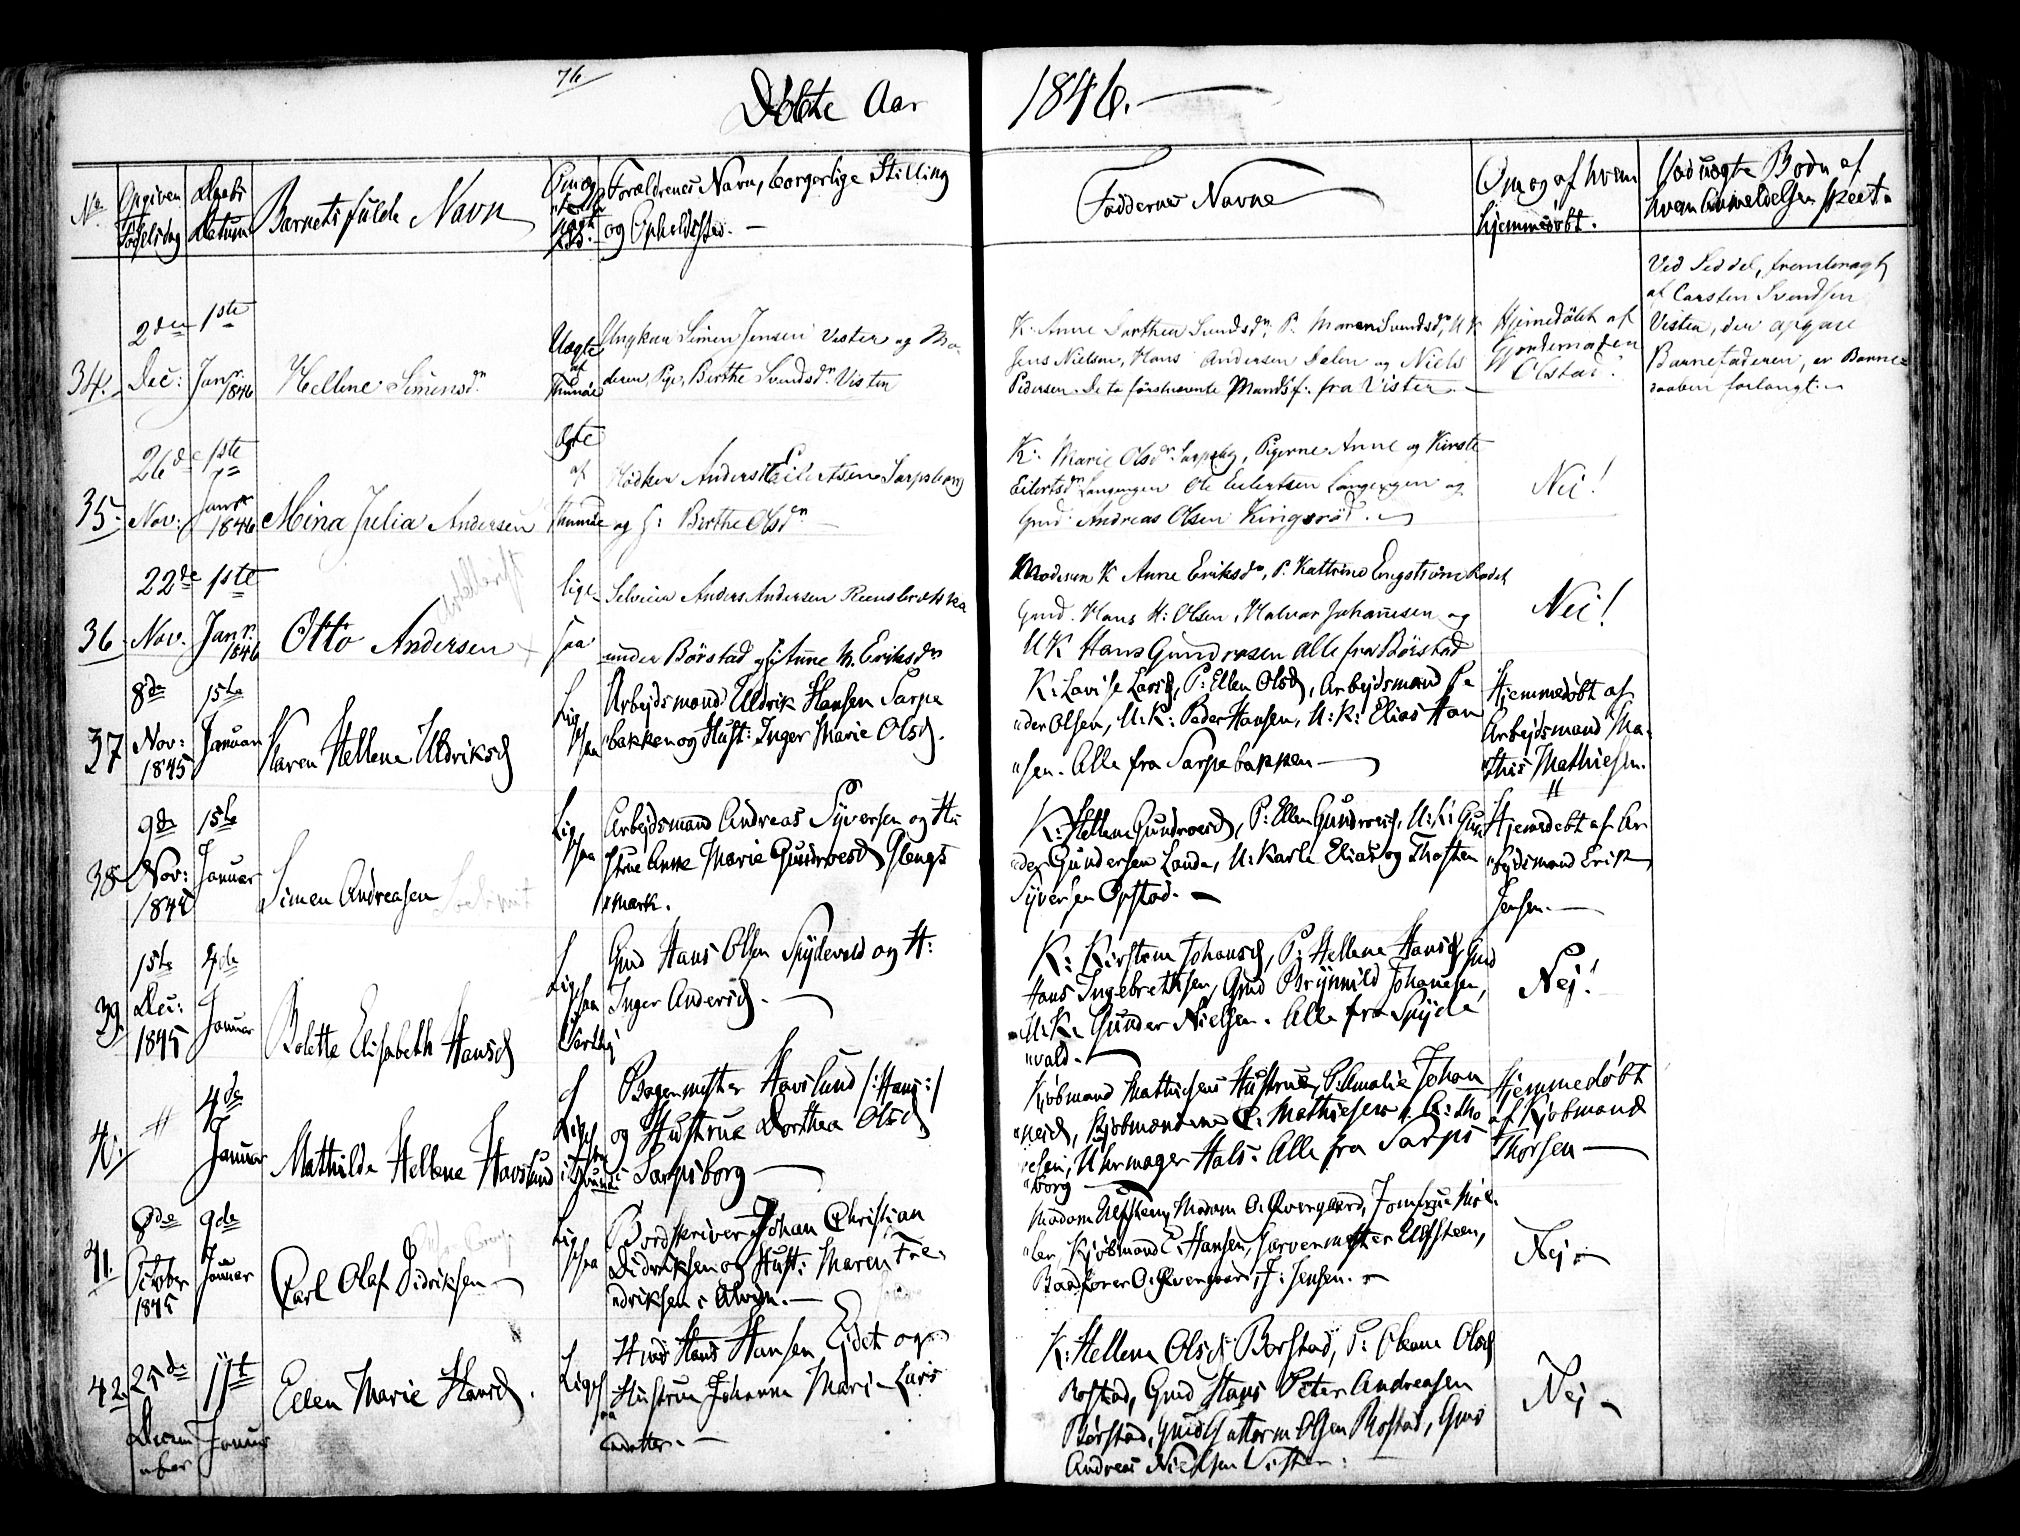 76
Døbte Aar 1846.
No. Opgiven Fødselsdag Daabs Datum Barnets fulde Navn Om ægte eller uægte Fød: Forældrenes Navn, borgerlige Stilling og Opholdssted. Faddernes Navne Om og af hvem hjemmedøbt. Ved uægte Børn af hvem Anmeldelsen skeet.
34. 2den Dec: 1ste Janr. 1846 Hellene Simensdr.
Uægte af
Ungkarl Simen Jensen Vister og Mo-
deren, Pige, Berthe Svendsdr. Visten
K. Anne Dorthea Svendsdr., P. Maren Svendsdr., UK
Jens Nielsen, Hans Andersen Dalen og Niels
Pedersen. De to førstnævnte Mandsf. fra Vister.
Hjemedøbt af
Olstad.
Ved Seddel, frembragt
af Carsten Svendsen
Visten, der opgav
Barnefaderen, er Barne-
daaben forlangt.
35. 26de Nov: 1ste Janr. 1846 Mina Julia Andersen
Ægte af
Anders Eilertsen Sarpsborg
og H: Berthe Olsdr.
K. Marie Olsdr. Sarpsbg, Pigerne Anne og Kirste
Eilertsdr. Langengen Ole Eilertsen Langengen og
Gmd. Andreas Olsen Kingsrød.
Nei!
36. 22de Nov. 1ste Janr. 1846 Otto Andersen
lige-
saa
Selveier Anders Andersen
under Børstad og H: Anne M. Eriksdr.
Moderen K Anne Eriksdr., P. Kattrine Engstrøm
Gmd. Hans H: Olsen, Halvor Johannesen og
UK Hans Gundresen Alle fra Børstad
Nei!
37 8de Nov: 1845 1ste Januar Karen Hellene Uldriksd
Lig-
esaa
Arbejdsmand Uldrik Hansen Sarps
"bakken og Hust: Inger Marie Olsd.
K: Lovise Larsd, P: Ellen Olsd, Arbejdsmand Pe
"der Olsen, U:K: Peder Hansen, U:K: Elias Han
"sen. Alle fra Sarpsbakken
Hjemmedøbt af
Arbejdsmand Ma-
"this Mathiesen.
38 9de Nov: 1845 1ste Januar Simen Andreasen
Lig-
esaa
Arbejdsmand Andreas Syversen og Hu
strue Anne Marie Gundroesd Glengs
"mark.
K: Hellene Gundroesd, P: Ellen Gundroesd, U:K: Gun
"der Gundersen Lande, U:Karle Elias og Thosten
Syversen Opstad.
Hjemedøbt af Ar
"bejdsmand Erik
Jensen.
39. 1ste Dec: 1845 4de Januar Bolette Elisabeth Hansd
Lig-
esaa
Gmd Hans Olsen Spydevold og H:
Inger Andersd.
K: Kirstine Johansd, P: Hellene Hansd, Gmd
Hans Ingebrethsen, Gmd Brynnild Johanesen,
U:K: Gunder Nielsen. Alle fra Spyde
"vald.
Nej!
40. " 4de Januar Mathilde Hellene Havslund
Bagermester Havslund /:Hans:/
og Hustrue Dorthea Olsd
i Sarpsborg
Kjøbmand Mathiesens Hustrue, P: Amalie Johan
"nesd, Kjøbmændene C: Mathiesen, A: Tho
resen, Uhrmager Hals: Alle fra Sarps
"borg
Hjemmedøbt
af Kjøbmand
Thorsen
41. 8de October 1845 9de Januar Carl Olaf Didriksen
Lig-
esaa
Bordskriver Johan Christian
Didriksen og Hust: Maren Fre-
"driksen
Madam Ulfsteen, Madam O: Overgaard, Jomfrue
Kjøbmand E: Hansen, Garvermester Ulfsteen,
Baadfører O: Overgaard, J: Jensen.
Nej
42. 25de Decem
"ber 11te Januar Ellen Marie Hansd.
Ligesaa
Hans Hansen Eidet og
Hustrue Johanne Marie Lars
"datter.
K: Hellene Olsd: Borstad, P: Oleane Olsd
Borstad, Gmd Hans Peter Andreasen
Børstad, Gmd Guttorm Olsen Børstad, Gmd
Andreas Nielsen Vister.
Nej